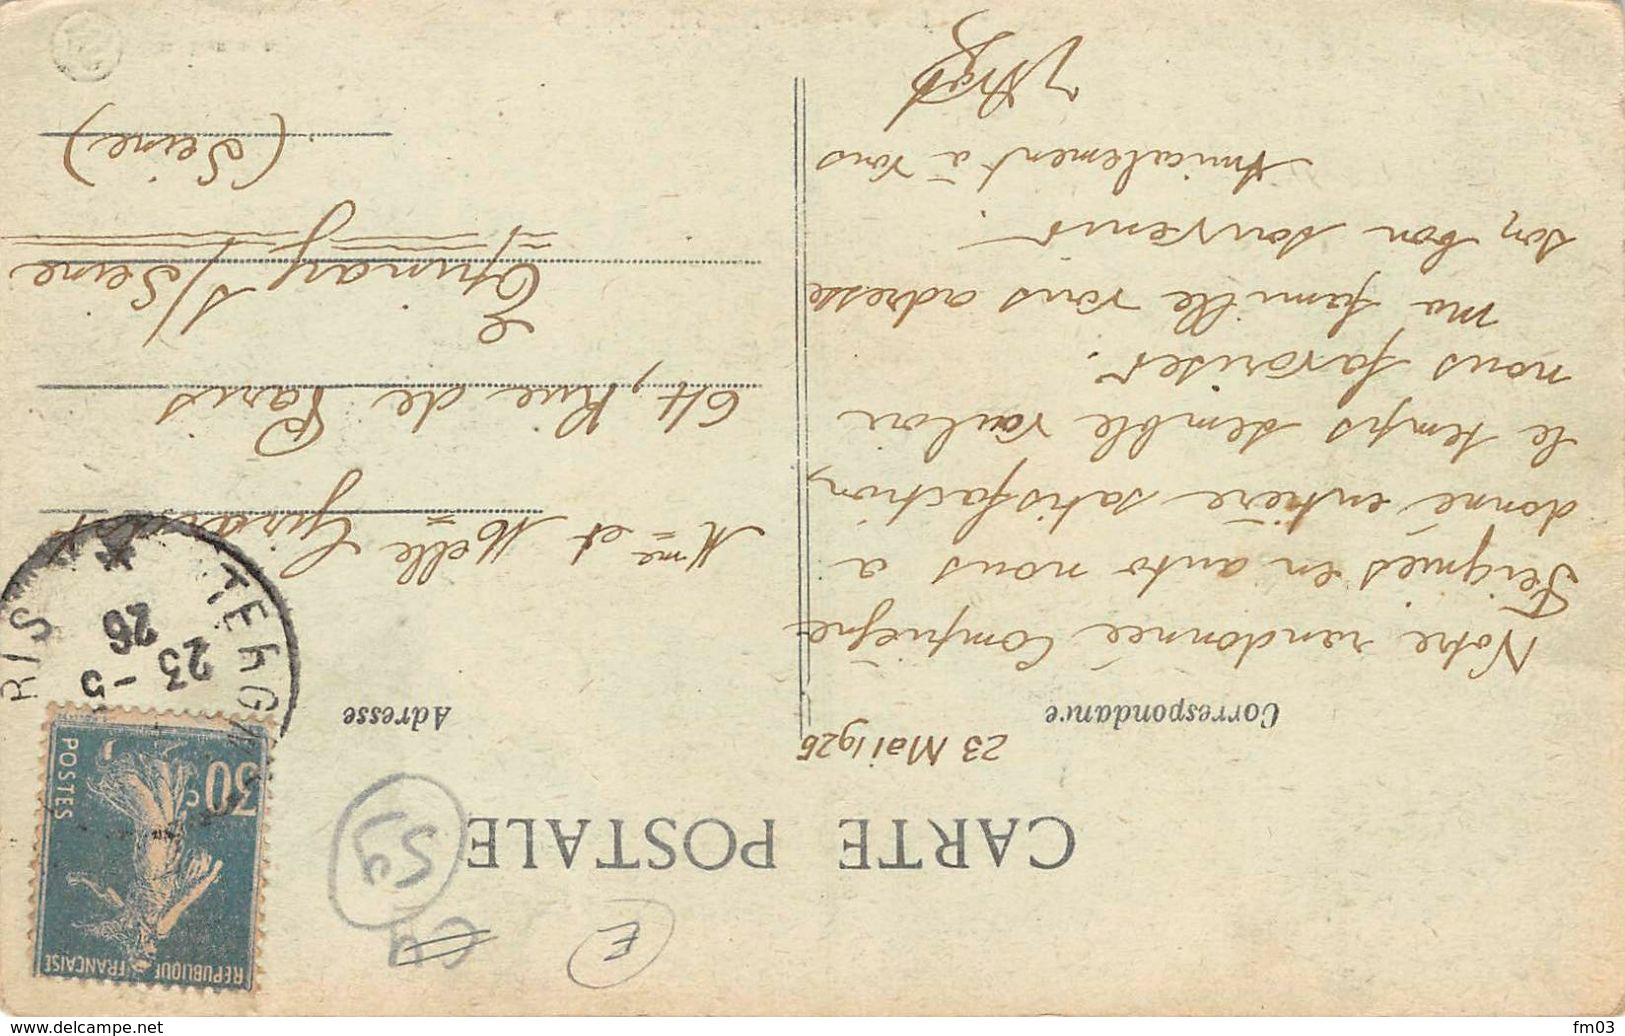 CARTE POSTALE
23 Mai 1926
Correspondance
Notre randonnée Compiègne
Feignies en auto nous a
donné entière satisfaction,
le temps semble vouloir
nous favoriser.
ma famille vous adresse
son bon souvenir.
Amicalement à vous
Adresse
Mme et Melle Girardot
64, Rue de Paris
Epinay s/Seine
(Seine)
REPUBLIQUE FRANÇAISE
30c
POSTES
TERGN
RIS
23 - 5
26
E
59
www.delcampe.net
fm03